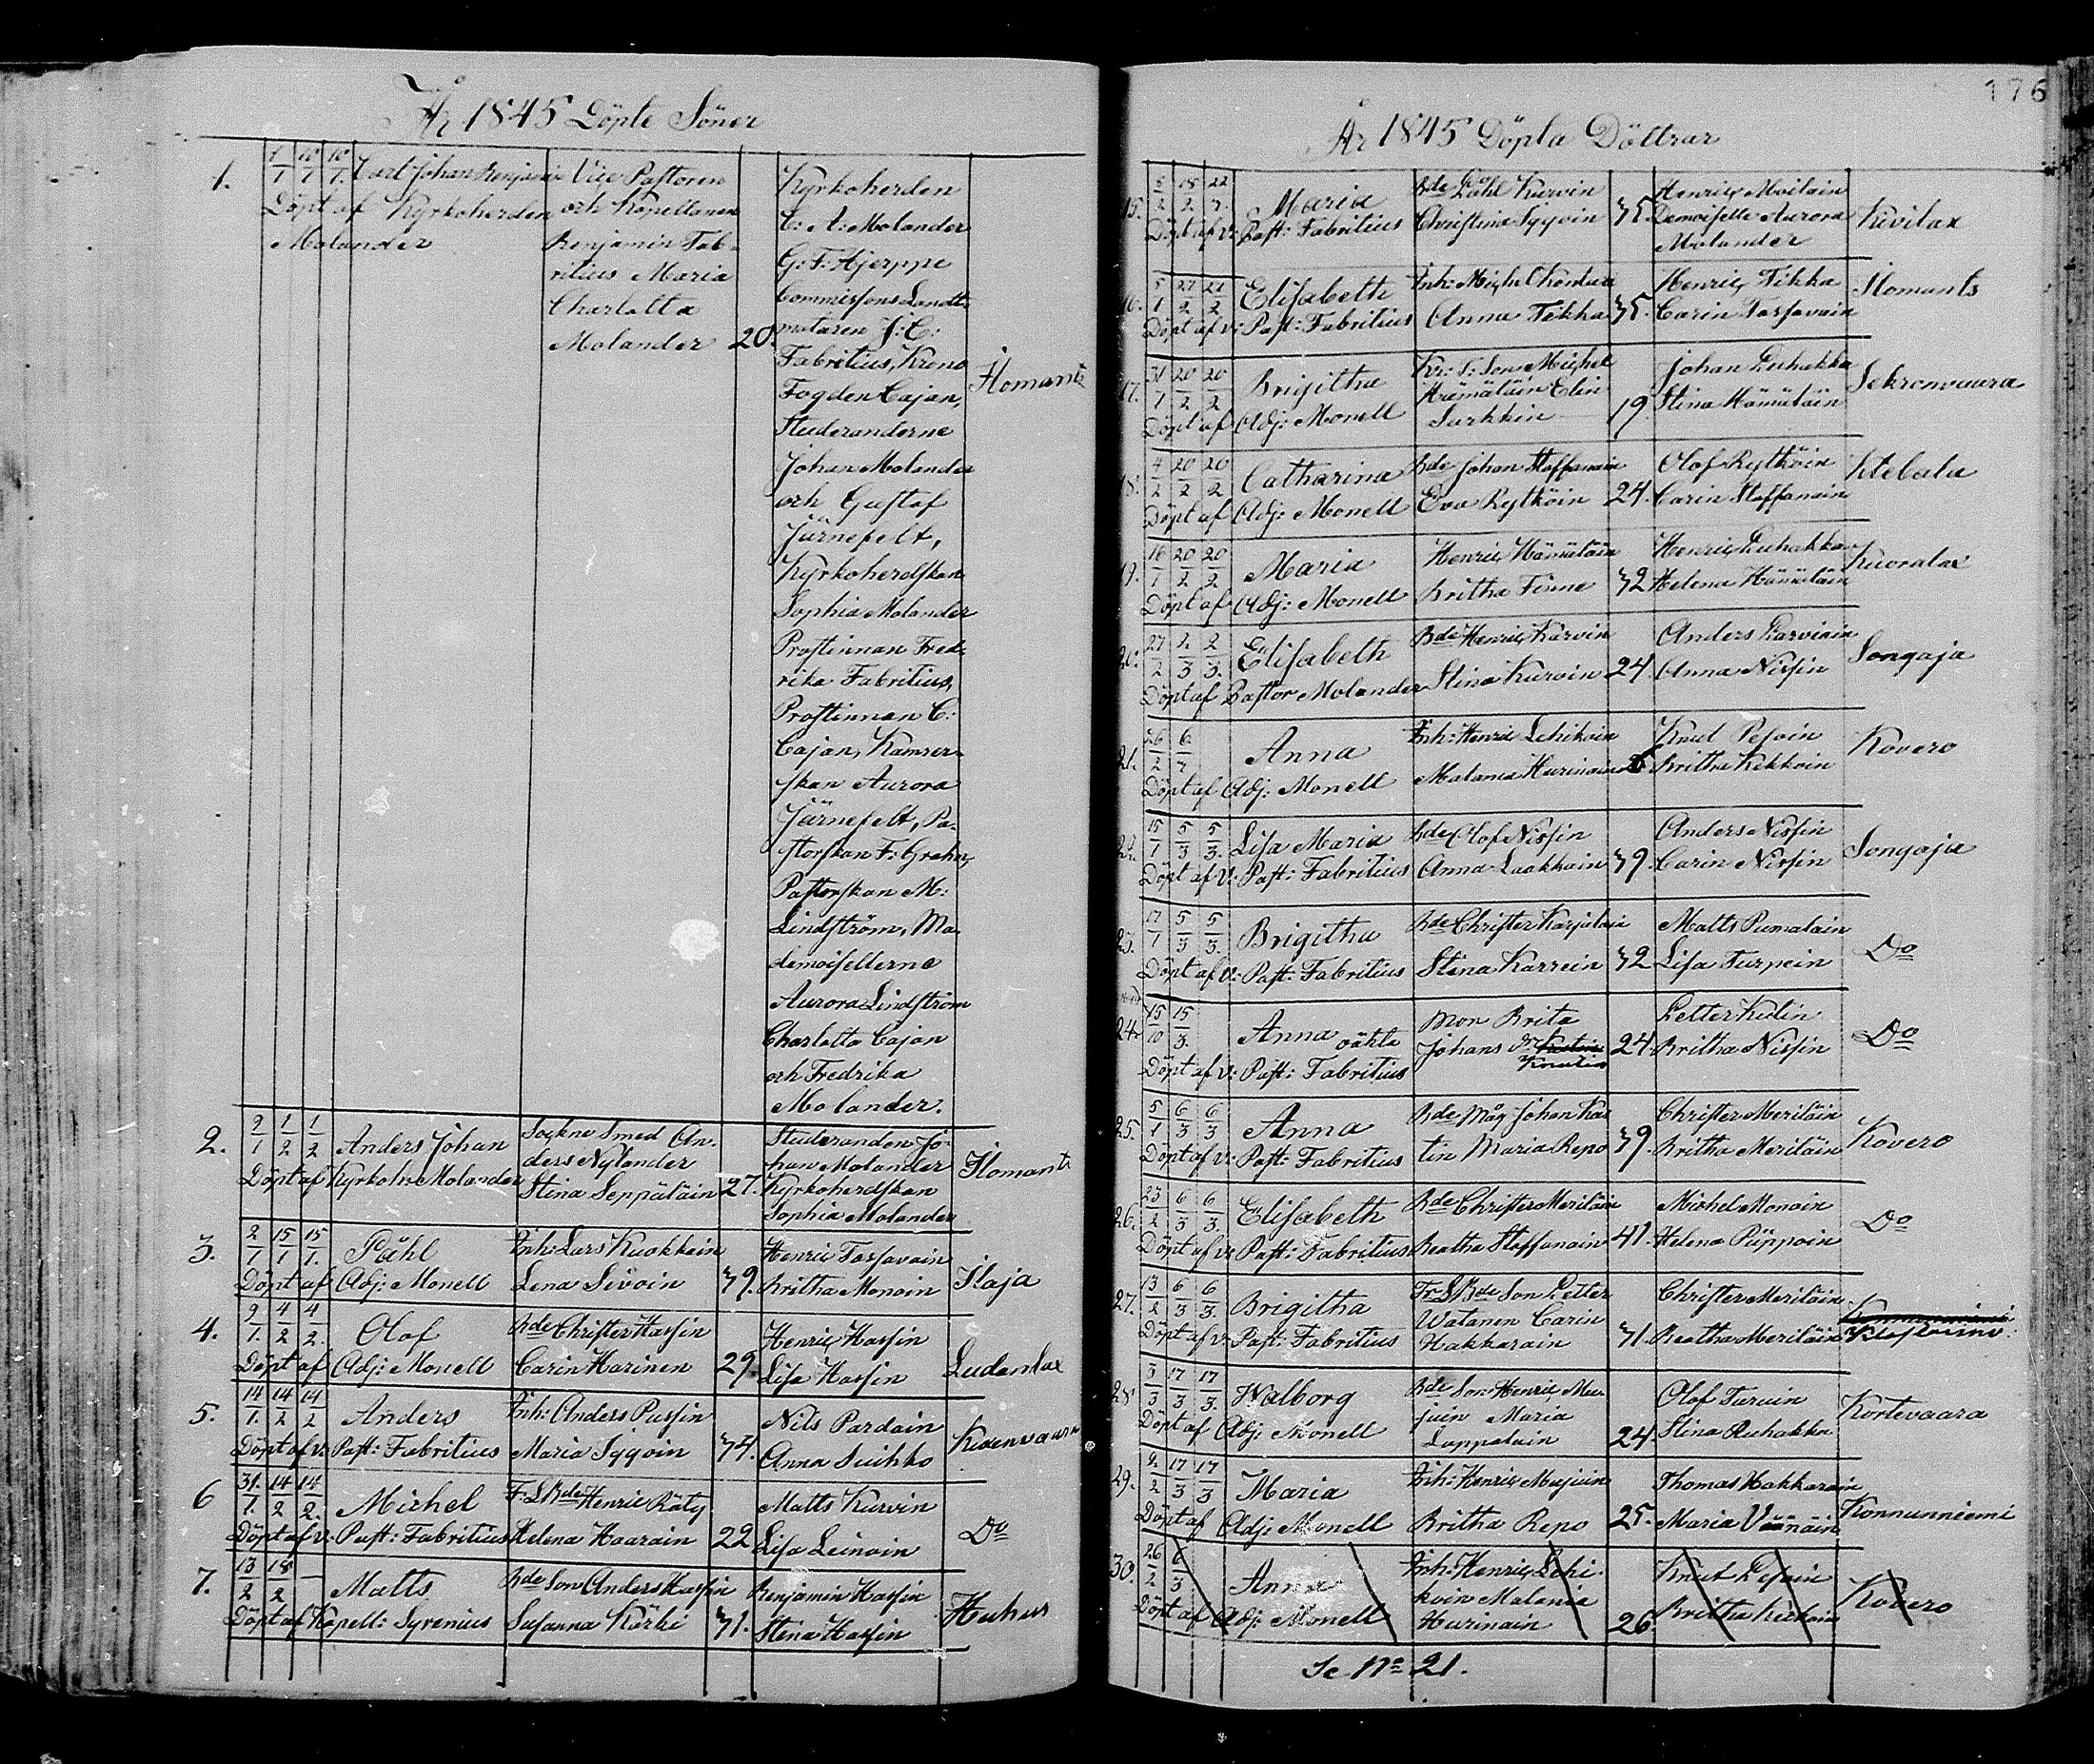 År 1845 Döpte Söner
1. 1/1 10/1 10/1. Carl Johan Benjamin Vice Pastoren Kyrkoherden
Döpt af Kyrkoherden och Kapellanen C: A: Molander
Molander Benjamin Fab- G: F: Hjerppe
ritius Maria Commissions Landt-
Charlotta mätaren J: C:
Molander 20. Fabritius, Krono
Fogden Cajan, Ilomants
Studeranderne
Johan Molander
och Gustaf
Järnefelt,
Kyrkoherdskan
Sophia Molander
Prostinnan Fred-
rika Fabritius,
Prostinnan C:
Cajan, Kamrer-
skan Aurora
Järnefelt, Pa-
storskan F: Grahn,
Pastorskan M:
Lindström, Ma-
demoisellerne
Aurora Lindström
Charlotta Cajan
och Fredrika
Molander.
2. 9/1 1/2 1/2 Anders Johan Sockne Smed An- Studeranden Jo-
ders Nylander han Molander Ilomants
Döpt af Kyrkoh: Molander Stina Seppäläin 27. Kyrkoherdskan
Sophia Molander
3. 2/1 15/1 15/1. Påhl Inh: Lars Kuokkain Henric Tarfavain
Döpt af Adj: Monell Lena Sivoin 39. Britha Monoin Ilaja
4. 9/1. 4/2 4/2. Olof Bde Christer Hassin Henric Hassin
Döpt af Adj: Monell Carin Harinen 29. Lisa Hassin Ludanlax
5. 14/1. 14/2 14/2 Anders Inh: Anders Pussin Nils Pardain
Döpt af v: Past: Fabritius Maria Iggoin 34. Anna Suihko
6 31./1. 14/2 14/2. Michel F: L Bde Henric Räty Matts Kurvin
Döpt af v: Past: Fabritius Helena Haarain 22 Lisa Leinoin Do
7. 13/2 18/2 — Matts Bde Son Anders Hassin Benjamin Hassin
Döpt af Kapell: Syrenius Susanna Kärki 31. Stena Hassin Huhus
176
År 1845 Döpta Döttrar
15. 5/2 18/2 22/7. Maria Bde Påhl Kurvin Henric Moilain
Döpt af v: Past: Fabritius Christina Iggoin 35. Demoiselle Aurora Kivilax
Molander
16. 5/1 27/2 27/2 Elisabeth Inh: Michel Henric Tikka Ilomants
Döpt af v: Past: Fabritius Anna Tikka 35. Carin Tarfavain
17. 31/1 20/2 20/2 Brigitha Kr: S: Son Michel Johan Puhakka
Hämäläin Elin Stina Hämäläin
Döpt af Adj: Monell Surkkin 19.
18. 4/2 20/2 20/2 Catharina Bde Johan Staffanain Olof Rytköin
Döpt af Adj: Monell Eva Rytköin 24. Carin Staffanain
19. 16/1 20/2 20/2 Maria Henric Hämäläin Henric Puhakka Kuoralax
Döpt af Adj: Monell Britha Finne 32 Helena Hämäläin
20. 27/2 2/3 2/3. Elisabeth Bde Henric Karvin Anders Karviain
Döpt af Pastor Molander Stina Kurvin 24. Anna Nissin Songaja
21. 26/2 6/7 Anna Inh: Henric Lehikoin Knut Pesoin Kovero
Döpt af Adj: Monell Malania Hurinain 26 Britha Kekkoin
22. 15/1 5/3 5/3. Lisa Maria Bde Olof Nissin Anders Nissin
Döpt af V: Past: Fabritius Anna Laakkain 39. Carin Nissin Songaja
23. 17/1 5/3 5/3. Brigitha Bde Christer Karjalain Matts Pumalain
Döpt af v: Past: Fabritius Stina Karrein 32 Lisa Turpein Do
24. 15/10 15/3. Anna oäkta Mor Brita Petter Kutin
Johans Dr 24. Britha Nissin Do
Döpt af v: Past: Fabritius
25. 5/1 6/3 6/3 Anna Bde Måg Johan Ku- Christer Meriläin
Döpt af v: Past: Fabritius tin Maria Repo 39. Britha Meriläin Kovero
26. 23/2 6/3 6/3. Elisabeth Bde Christer Meriläin Michel Monoin
Döpt af v: Past: Fabritius Beatha Staffanain 41. Helena Piippoin Do
27. 13/2 6/3 6/3. Brigitha Fr L Bde Son Petter Christer Meriläin
Watanen Carin
Döpt af v: Past: Fabritius Hakkarain 31. Beatha Meriläin
28 3/3 17/3 17/3 Walborg Bde Son Henric Mu- Olof Turuin
juin Maria Kortevaara
Döpt af Adj: Monell Lappalain 24 Stina Puhakka
29. 4/2 17/3 17/3 Maria Inh: Henric Mujuin Thomas Hakkarain
Döpt af Adj: Monell Britha Repo 25. Maria Väänäin Konnunniemi
30. 26/2 6/3 Anna Inh: Henric Lehi- Knut Pesoin
koin Malania Kovero
Döpt af Adj: Monell Hurinain 26. Britha Kekkoin
Se No 21.